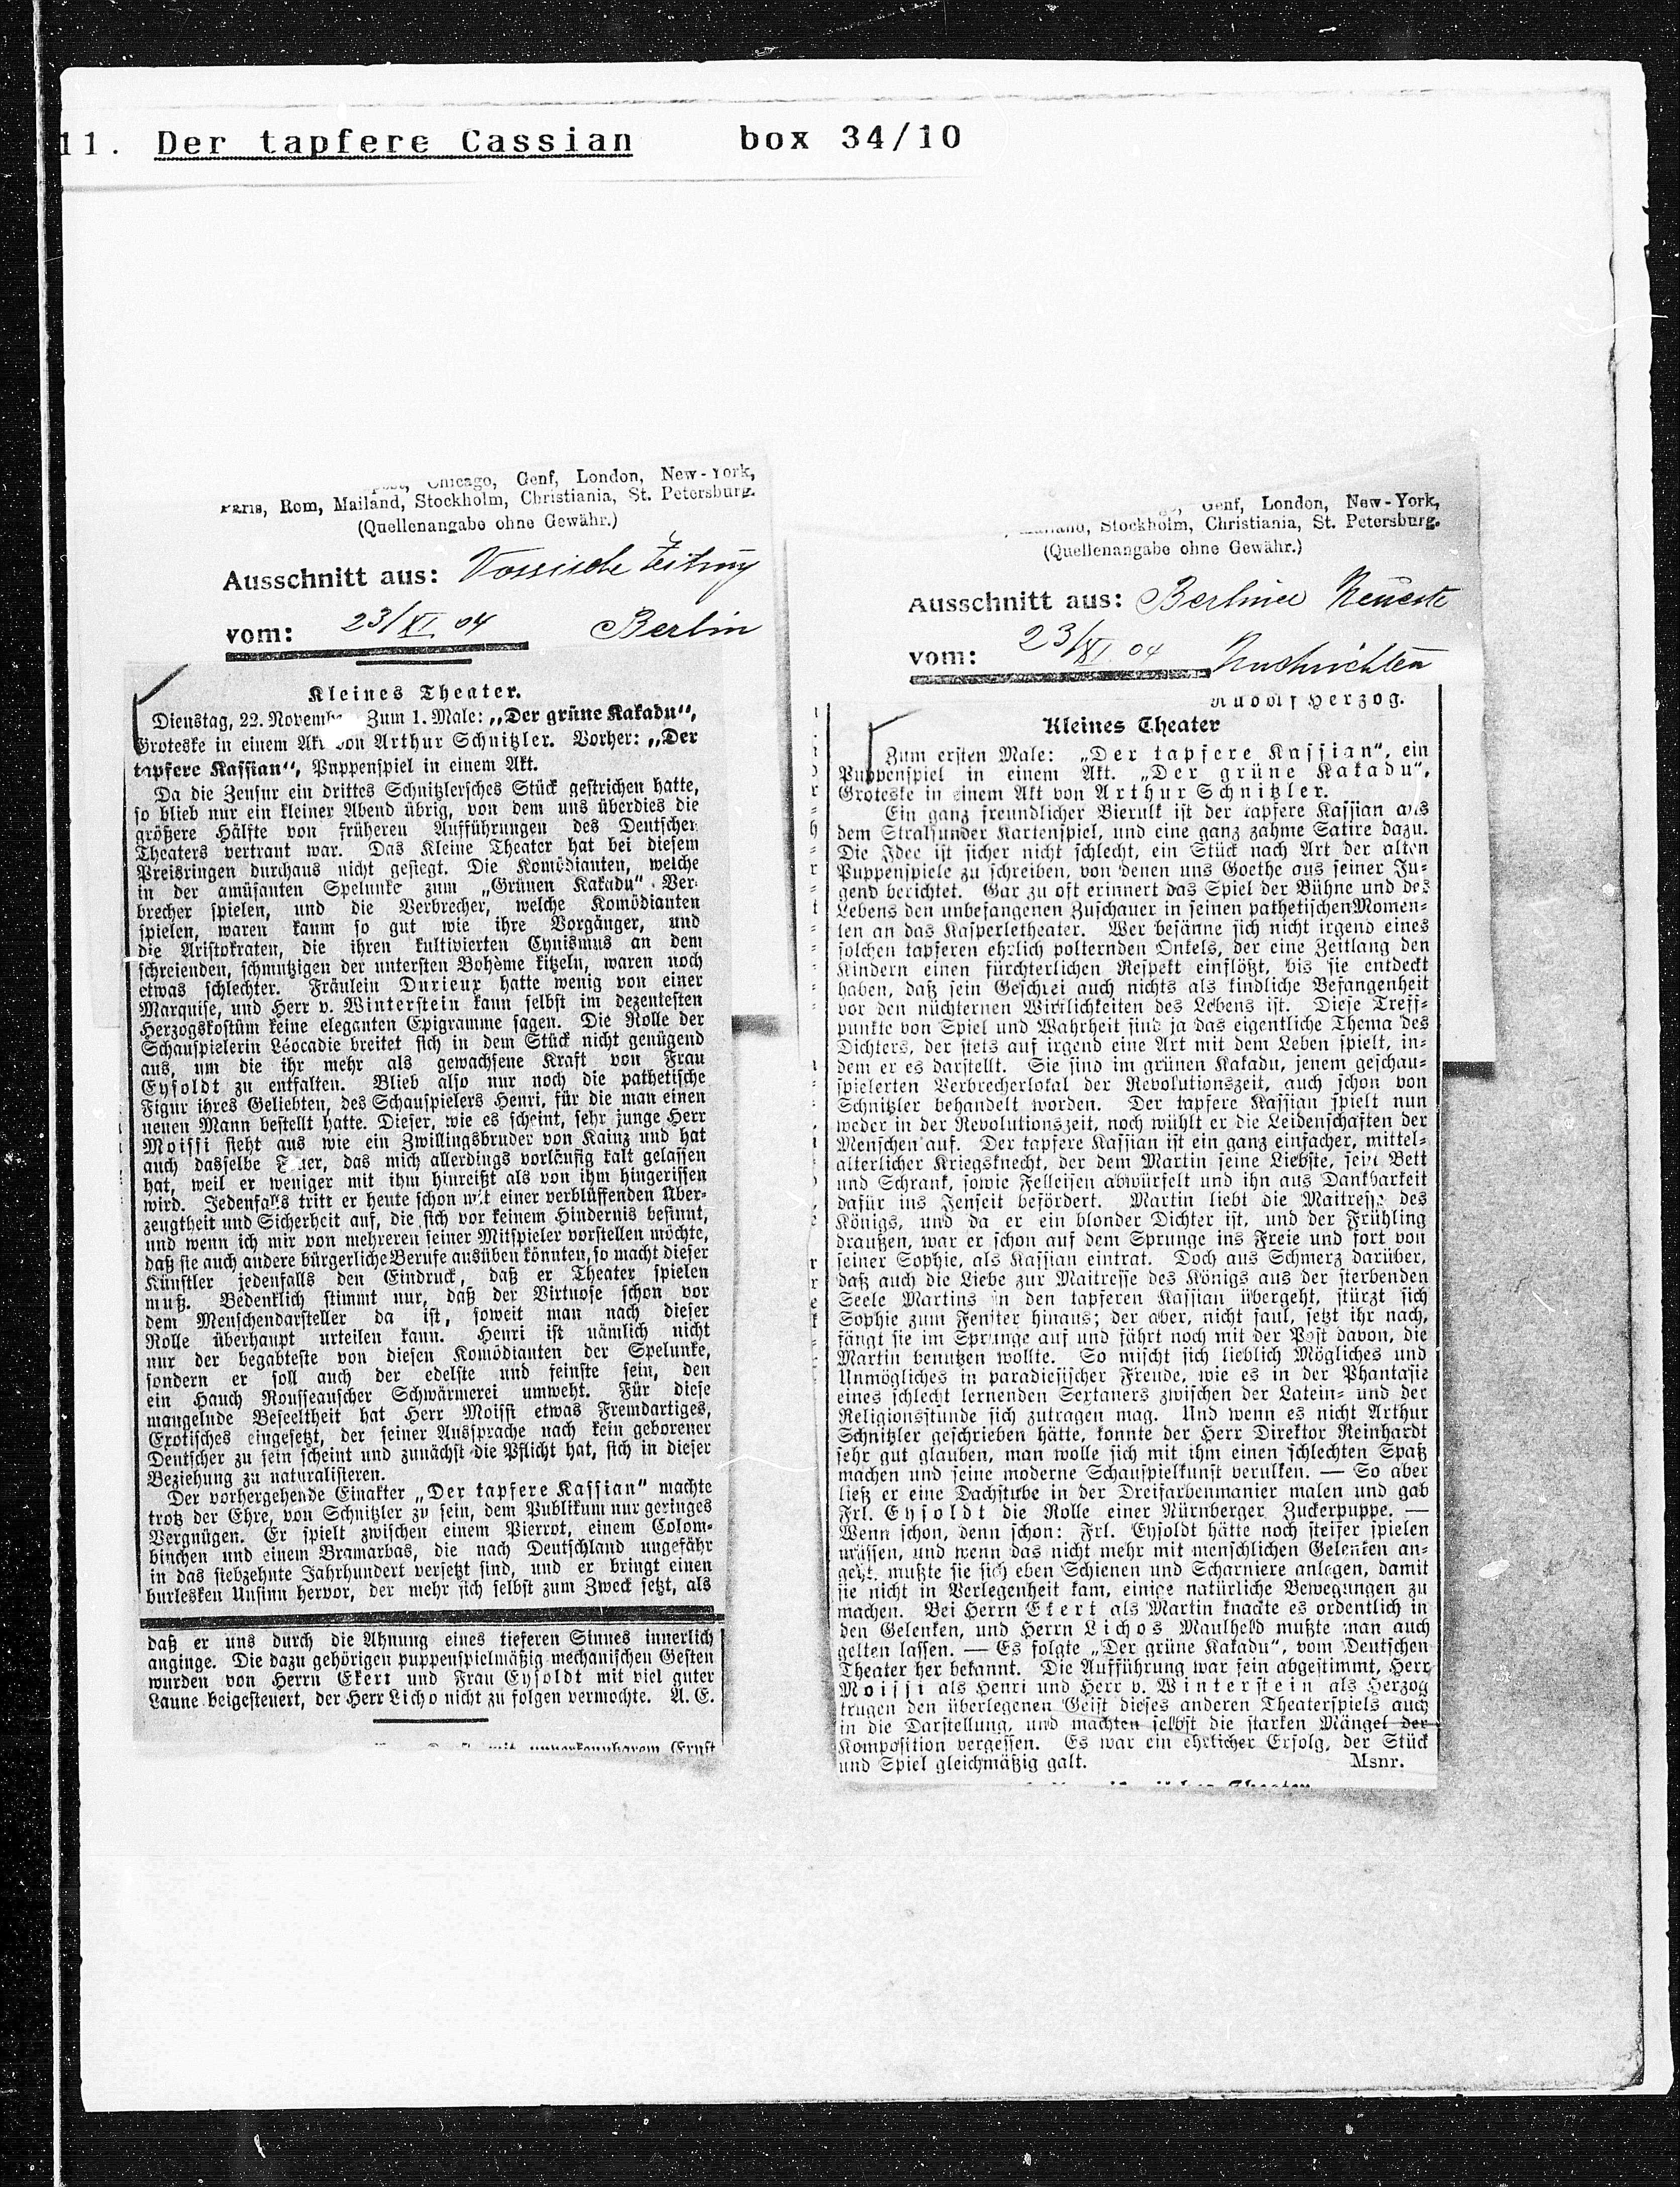 11. Der tapfere Cassian box 34/10
Chicago, Genf, London, New-York,
Paris, Rom, Mailand, Stockholm, Christiania, St. Petersburg.
(Quellenangabe ohne Gewähr.)
Ausschnitt aus: Vossische Zeitung
vom: 23/XI 04 Berlin
Kleines Theater.
Dienstag, 22. Novembe Zum 1. Male: „Der grüne Kakadu“,
Groteske in einem Akt von Arthur Schnitzler. Vorher: „Der
tapfere Kassian“, Puppenspiel in einem Akt.
Da die Zensur ein drittes Schnitzlersches Stück gestrichen hatte,
so blieb nur ein kleiner Abend übrig, von dem uns überdies die
größere Hälfte von früheren Aufführungen des Deutschen
Theaters vertraut war. Das Kleine Theater hat bei diesem
Preisringen durchaus nicht gesiegt. Die Komödianten, welche
in der amüsanten Spelunke zum „Grünen Kakadu“ Ver-
brecher spielen, und die Verbrecher, welche Komödianten
spielen, waren kaum so gut wie ihre Vorgänger, und
die Aristokraten, die ihren kultivierten Cynismus an dem
schreienden, schmutzigen der untersten Bohème kitzeln, waren noch
etwas schlechter. Fräulein Durieux hatte wenig von einer
Marquise, und Herr v. Winterstein kann selbst im dezentesten
Herzogskostüm keine eleganten Epigramme sagen. Die Rolle der
Schauspielerin Léocadie breitet sich in dem Stück nicht genügend
aus, um die ihr mehr als gewachsene Kraft von Frau
Eysoldt zu entfalten. Blieb also nur noch die pathetische
Figur ihres Geliebten, des Schauspielers Henri, für die man einen
neuen Mann bestellt hatte. Dieser, wie es scheint, sehr junge Herr
Moissi sieht aus wie ein Zwillingsbruder von Kainz und hat
auch dasselbe Feuer, das mich allerdings vorläufig kalt gelassen
hat, weil er weniger mit ihm hinreißt als von ihm hingerissen
wird. Jedenfalls tritt er heute schon mit einer verblüffenden Über-
zeugtheit und Sicherheit auf, die sich vor keinem Hindernis besinnt,
und wenn ich mir von mehreren seiner Mitspieler vorstellen möchte,
daß sie auch andere bürgerliche Berufe ausüben könnten, so macht dieser
Künstler jedenfalls den Eindruck, daß er Theater spielen
muß. Bedenklich stimmt nur, daß der Virtuose schon vor
dem Menschendarsteller da ist, soweit man nach dieser
Rolle überhaupt urteilen kann. Henri ist nämlich nicht
nur der begabteste von diesen Komödianten der Spelunke,
sondern er soll auch der edelste und feinste sein, den
ein Hauch Rousseauscher Schwärmerei umweht. Für diese
mangelnde Beseeltheit hat Herr Moissi etwas Fremdartiges,
Exotisches eingesetzt, der seiner Aussprache nach kein geborener
Deutscher zu sein scheint und zunächst die Pflicht hat, sich in dieser
Beziehung zu naturalisieren.
Der vorhergehende Einakter „Der tapfere Kassian“ machte
trotz der Ehre, von Schnitzler zu sein, dem Publikum nur geringes
Vergnügen. Er spielt zwischen einem Pierrot, einem Colom-
binchen und einem Bramarbas, die nach Deutschland ungefähr
in das siebzehnte Jahrhundert versetzt sind, und er bringt einen
burlesken Unsinn hervor, der mehr sich selbst zum Zweck setzt, als
daß er uns durch die Ahnung eines tieferen Sinnes innerlich
anginge. Die dazu gehörigen puppenspielmäßig mechanischen Gesten
wurden von Herrn Ekert und Frau Eysoldt mit viel guter
Laune beigesteuert, der Herr Licho nicht zu folgen vermochte. A. E.
mit unverkennbarem Ernst
Genf, London, New-York,
Mailand, Stockholm, Christiania, St. Petersburg.
(Quellenangabe ohne Gewähr.)
Ausschnitt aus: Berliner Neueste
vom: 23/XI 04 Nachrichten
Rudolf Herzog.
Kleines Theater
Zum ersten Male: „Der tapfere Kassian“, ein
Puppenspiel in einem Akt. „Der grüne Kakadu“,
Groteske in einem Akt von Arthur Schnitzler.
Ein ganz freundlicher Bierulk ist der tapfere Kassian aus
dem Stralsunder Kartenspiel, und eine ganz zahme Satire dazu.
Die Idee ist sicher nicht schlecht, ein Stück nach Art der alten
Puppenspiele zu schreiben, von denen uns Goethe aus seiner Ju-
gend berichtet. Gar zu oft erinnert das Spiel der Bühne und des
Lebens den unbefangenen Zuschauer in seinen pathetischen Momen-
ten an das Kasperletheater. Wer besänne sich nicht irgend eines
solchen tapferen ehrlich polternden Onkels, der eine Zeitlang den
Kindern einen fürchterlichen Respekt einflößt, bis sie entdeckt
haben, daß sein Geschrei auch nichts als kindliche Befangenheit
vor den nüchternen Wirklichkeiten des Lebens ist. Diese Treff-
punkte von Spiel und Wahrheit sind ja das eigentliche Thema des
Dichters, der stets auf irgend eine Art mit dem Leben spielt, in-
dem er es darstellt. Sie sind im grünen Kakadu, jenem geschau-
spielerten Verbrecherlokal der Revolutionszeit, auch schon von
Schnitzler behandelt worden. Der tapfere Kassian spielt nun
weder in der Revolutionszeit, noch wühlt er die Leidenschaften der
Menschen auf. Der tapfere Kassian ist ein ganz einfacher, mittel-
alterlicher Kriegsknecht, der dem Martin seine Liebste, sein Bett
und Schrank, sowie Felleisen abwürfelt und ihn aus Dankbarkeit
dafür ins Jenseit befördert. Martin liebt die Maitresse des
Königs, und da er ein blonder Dichter ist, und der Frühling
draußen, war er schon auf dem Sprunge ins Freie und fort von
seiner Sophie, als Kassian eintrat. Doch aus Schmerz darüber,
daß auch die Liebe zur Maitresse des Königs aus der sterbenden
Seele Martins in den tapferen Kassian übergeht, stürzt sich
Sophie zum Fenster hinaus; der aber, nicht faul, setzt ihr nach,
fängt sie im Sprunge auf und fährt noch mit der Post davon, die
Martin benutzen wollte. So mischt sich lieblich Mögliches und
Unmögliches in paradiesischer Freude, wie es in der Phantasie
eines schlecht lernenden Sextaners zwischen der Latein- und der
Religionsstunde sich zutragen mag. Und wenn es nicht Arthur
Schnitzler geschrieben hätte, konnte der Herr Direktor Reinhardt
sehr gut glauben, man wolle sich mit ihm einen schlechten Spaß
machen und seine moderne Schauspielkunst verulken. — So aber
ließ er eine Dachstube in der Dreifarbenmanier malen und gab
Frl. Eysoldt die Rolle einer Nürnberger Zuckerpuppe. —
Wenn schon, denn schon: Frl. Eysoldt hätte noch steifer spielen
müssen, und wenn das nicht mehr mit menschlichen Gelenken an-
geht, mußte sie sich eben Schienen und Scharniere anlegen, damit
sie nicht in Verlegenheit kam, einige natürliche Bewegungen zu
machen. Bei Herrn Ekert als Martin knackte es ordentlich in
den Gelenken, und Herrn Lichos Maulheld mußte man auch
gelten lassen. — Es folgte „Der grüne Kakadu“, vom Deutschen
Theater her bekannt. Die Aufführung war fein abgestimmt, Herr
Moissi als Henri und Herr v. Winterstein als Herzog
trugen den überlegenen Geist dieses anderen Theaterspiels auch
in die Darstellung, und machten selbst die starken Mängel der
Komposition vergessen. Es war ein ehrlicher Erfolg, der Stück
und Spiel gleichmäßig galt. Msnr.